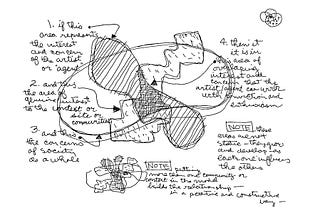 1. if this
area represents
the interest
and concern
of the artist
or "agent"
2. and this
the area of
genuine interest
to the context or
site or
communities
3. and this
the concerns
of society
as a whole
4. then it
it is in
this area of
overlapping
interest and
concern that the
artist/agent can work
with conviction and
enthusiasm
NOTE these
areas are not
static - they grow
and develop as
each one influences
the others
NOTE putting
more than one community or
context in the model
builds the relationship
in a positive and constructive
way